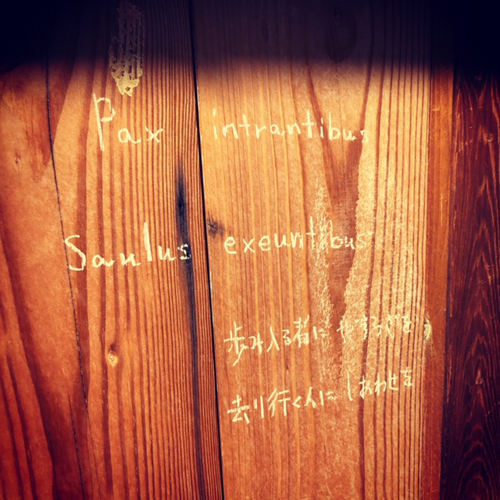 Pax intrantibus
Saulus exeuntibus
歩み入る者にやすらぎを
去り行く人にしあわせを